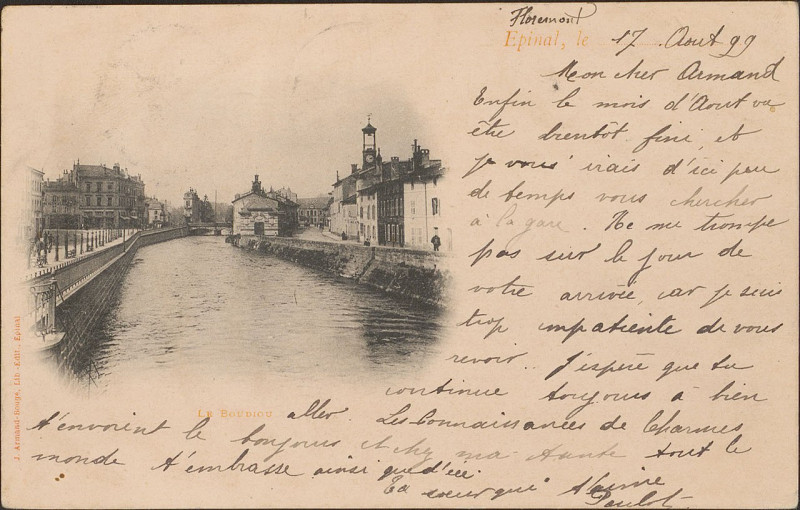 Floremont
Epinal, le 17 Aout 99
Mon cher Armand
Enfin le mois d'Aout va
être bientôt fini, et
je vous irais d'ici peu
de temps vous chercher
à la gare. Ne me trompe
pas sur le jour de
votre arrivée, car je suis
trop impatiente de vous
revoir. J'espère que tu
continue toujours à bien
aller. Les Connaissances de Charmes
t'envoient le bonjours et chez ma tante tout le
monde t'embrasse ainsi que d'ici
Ta soeur qui t'aime
LE BOUDIOU
J. Armand-Rouge, Lib.-Edit., Epinal